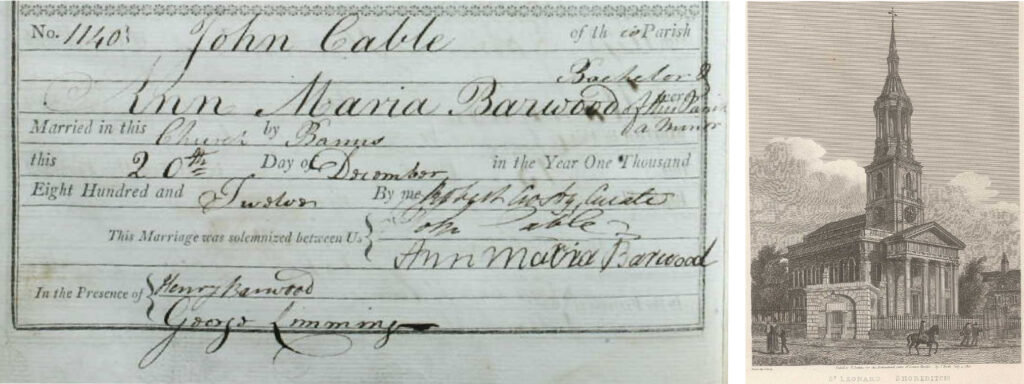 No. 1140 John Cable of this Parish
Bachelor &
Ann Maria Barwood of this Parish
a minor
Married in this Church by Banns
this 20th Day of December in the Year One Thousand
Eight Hundred and Twelve By me Curate
This Marriage was solemnized between Us John Cable
Ann Maria Barwood
In the Presence of Henry Barwood
George Limming
ST LEONARD SHOREDITCH